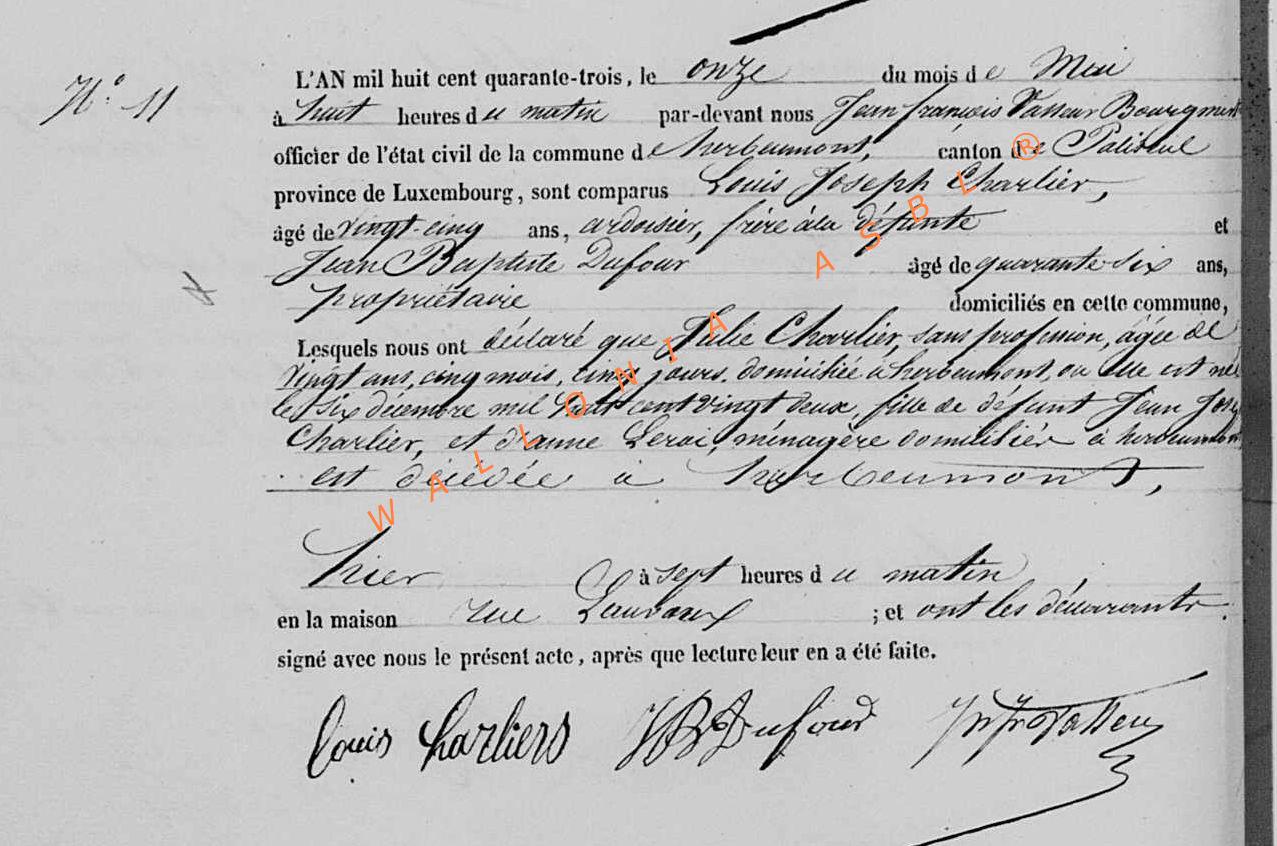 N.° 11
L'AN mil huit cent quarante-trois, le onze du mois de Mai
à huit heures du matin par-devant nous Jean françois Vasseur Bourgmest
officier de l'état civil de la commune de herbeumont, canton de Paliseul
province de Luxembourg, sont comparus Louis Joseph Charlier,
âgé de vingt-cinq ans, ardoisier, frère à la défunte et
Jean Baptiste Dufour âgé de quarante six ans,
propriétaire domiciliés en cette commune,
Lesquels nous ont déclaré que Julie Charlier, sans profession, âgée de
vingt ans, cinq mois, cinq jours, domiciliée à herbeumont, ou elle est née
le six décembre mil huit cent vingt deux, fille de défunt Jean Jose
Charlier, et d'anne Leroi, ménagère domiciliée à herbeumont
est décédée à herbeumont,
hier à sept heures du matin
en la maison rue ; et ont les déclarants
signé avec nous le présent acte, après que lecture leur en a été faite.
Louis Charliers JB Dufour Jn fs Vasseur
WALLONIA ASBL ®